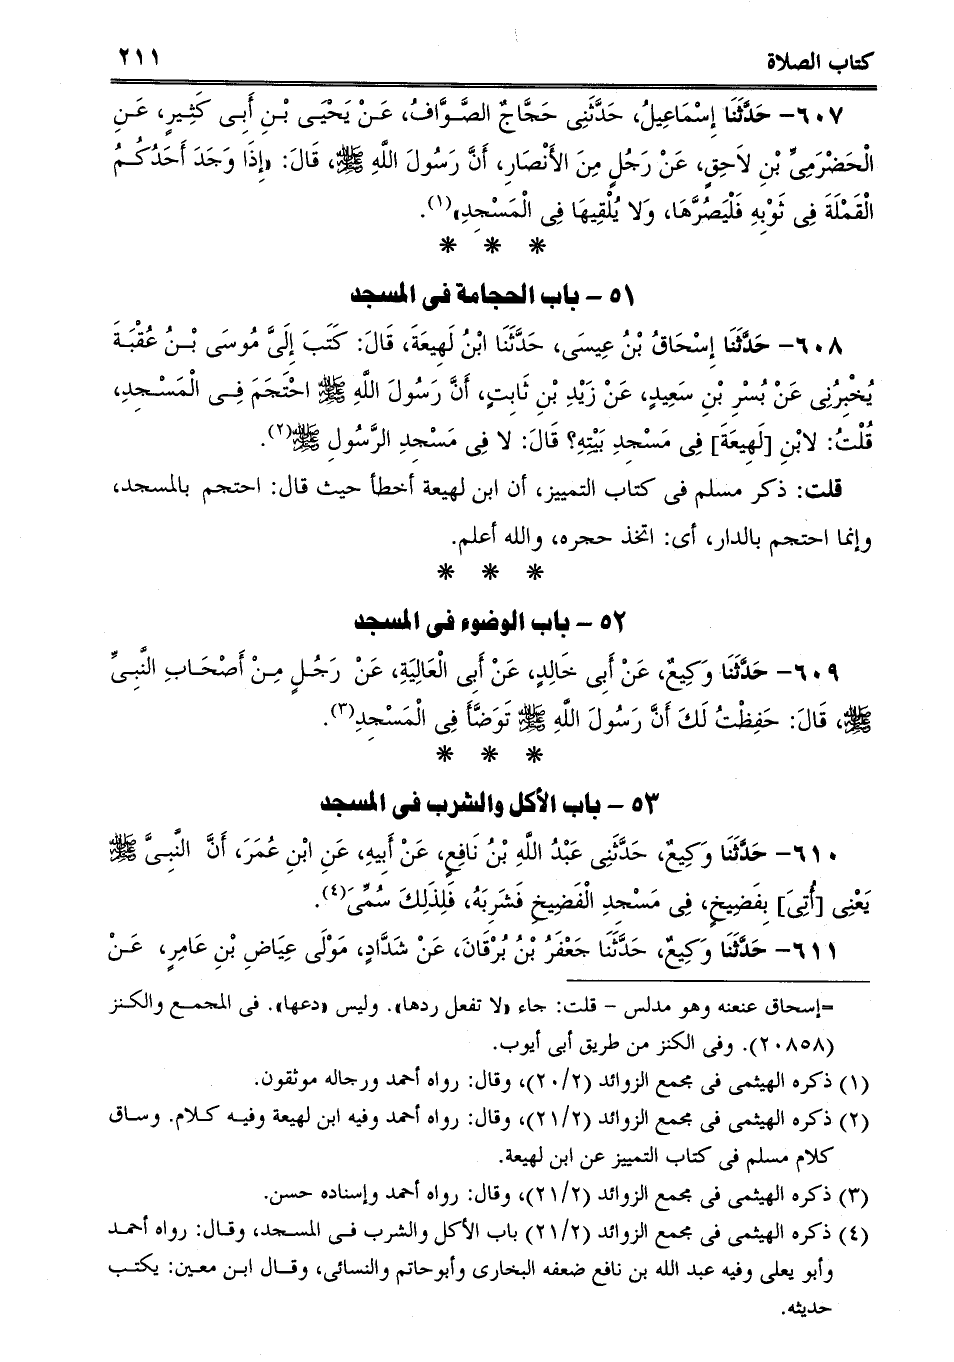 كتاب الصلاة ٢١١
٦٠٧- حَدَّثَنَا إِسْمَاعِيلُ، حَدَّثَنِى حَجَّاجٌ الصَّوَّافُ، عَنْ يَحْيَى بْنِ أَبِى كَثِيرٍ، عَنِ
الْحَضْرَمِىِّ بْنِ لاَحِقٍ، عَنْ رَجُلٍ مِنَ الأَنْصَارِ، أَنَّ رَسُولَ اللَّهِ ﷺ، قَالَ: «إِذَا وَجَدَ أَحَدُكُمُ
الْقَمْلَةَ فِى ثَوْبِهِ فَلْيَصُرَّهَا، وَلاَ يُلْقِيهَا فِى الْمَسْجِدِ»(١).
* * *
٥١ - باب الحجامة فى المسجد
٦٠٨- حَدَّثَنَا إِسْحَاقُ بْنُ عِيسَى، حَدَّثَنَا ابْنُ لَهِيعَةَ، قَالَ: كَتَبَ إِلَىَّ مُوسَى بْنُ عُقْبَةَ
يُخْبِرُنِى عَنْ بُسْرِ بْنِ سَعِيدٍ، عَنْ زَيْدِ بْنِ ثَابِتٍ، أَنَّ رَسُولَ اللَّهِ ﷺ احْتَجَمَ فِى الْمَسْجِدِ،
قُلْتُ: لابْنِ [لَهِيعَةَ] فِى مَسْجِدِ بَيْتِهِ؟ قَالَ: لا فِى مَسْجِدِ الرَّسُولِ ﷺ(٢).
قلت: ذكر مسلم فى كتاب التمييز، أن ابن لهيعة أخطأ حيث قال: احتجم بالمسجد،
وإنما احتجم بالدار، أى: اتخذ حجره، والله أعلم.
* * *
٥٢ - باب الوضوء فى المسجد
٦٠٩- حَدَّثَنَا وَكِيعٌ، عَنْ أَبِى خَالِدٍ، عَنْ أَبِى الْعَالِيَةِ، عَنْ رَجُلٍ مِنْ أَصْحَابِ النَّبِىِّ
ﷺ، قَالَ: حَفِظْتُ لَكَ أَنَّ رَسُولَ اللَّهِ ﷺ تَوَضَّأَ فِى الْمَسْجِدِ(٣).
* * *
٥٣ - باب الأكل والشرب فى المسجد
٦١٠- حَدَّثَنَا وَكِيعٌ، حَدَّثَنِى عَبْدُ اللَّهِ بْنُ نَافِعٍ، عَنْ أَبِيهِ، عَنِ ابْنِ عُمَرَ، أَنَّ النَّبِىَّ ﷺ
يَعْنِى [أُتِىَ] بِفَضِيخٍ، فِى مَسْجِدِ الْفَضِيخِ فَشَرِبَهُ، فَلِذَلِكَ سُمِّىَ(٤).
٦١١- حَدَّثَنَا وَكِيعٌ، حَدَّثَنَا جَعْفَرُ بْنُ بُرْقَانَ، عَنْ شَدَّادٍ، مَوْلَى عِيَاضِ بْنِ عَامِرٍ، عَنْ
=إسحاق عنعنه وهو مدلس - قلت: جاء «لا تفعل ردها». وليس «دعها». فى المجمع والكنز
(٢٠٨٥٨). وفى الكنز من طريق أبى أيوب.
(١) ذكره الهيثمى فى مجمع الزوائد (٢٠/٢)، وقال: رواه أحمد ورجاله موثقون.
(٢) ذكره الهيثمى فى مجمع الزوائد (٢١/٢)، وقال: رواه أحمد وفيه ابن لهيعة وفيه كلام. وساق
كلام مسلم فى كتاب التمييز عن ابن لهيعة.
(٣) ذكره الهيثمى فى مجمع الزوائد (٢١/٢)، وقال: رواه أحمد وإسناده حسن.
(٤) ذكره الهيثمى فى مجمع الزوائد (٢١/٢) باب الأكل والشرب فى المسجد، وقال: رواه أحمد
وأبو يعلى وفيه عبد الله بن نافع ضعفه البخارى وأبوحاتم والنسائى، وقال ابن معين: يكتب
حديثه.